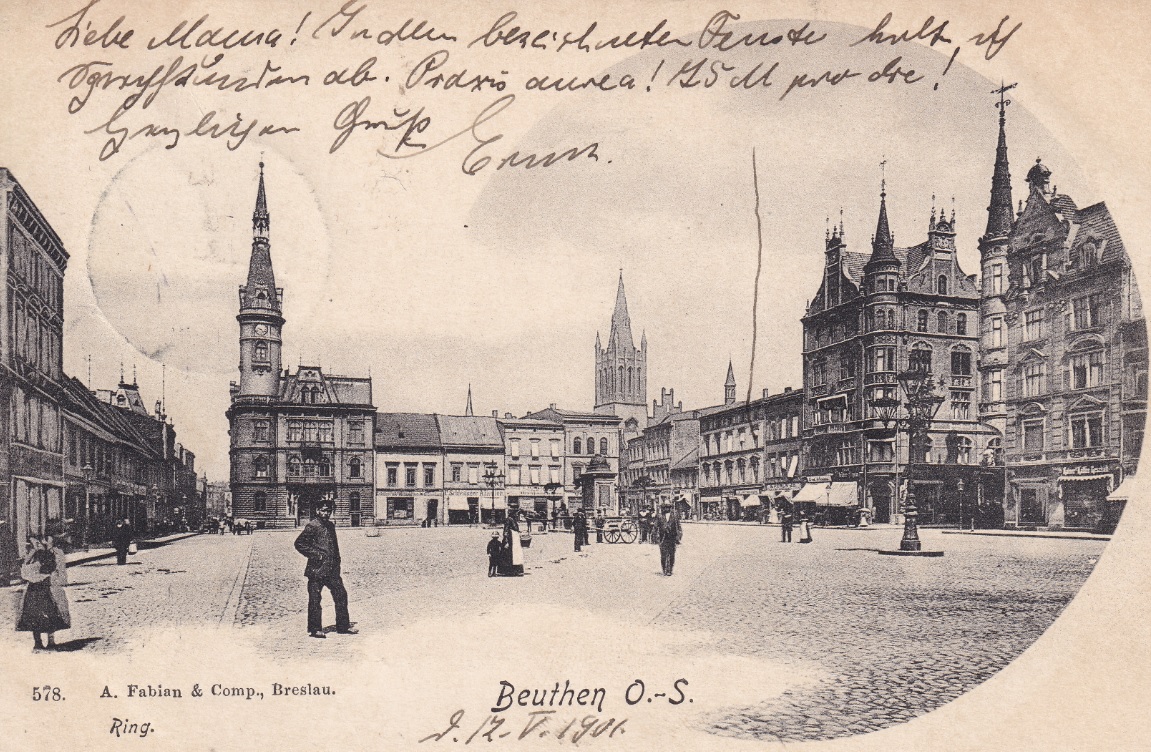 Liebe Mama! In dem bezeichneten Fenster halt ich
Sprechstunden ab. Praxis aurea! 75 M pro die!
Herzlichen Gruß
Ernst.
578. A. Fabian & Comp., Breslau.
Ring.
Beuthen O.-S.
d. 12. V. 1901.